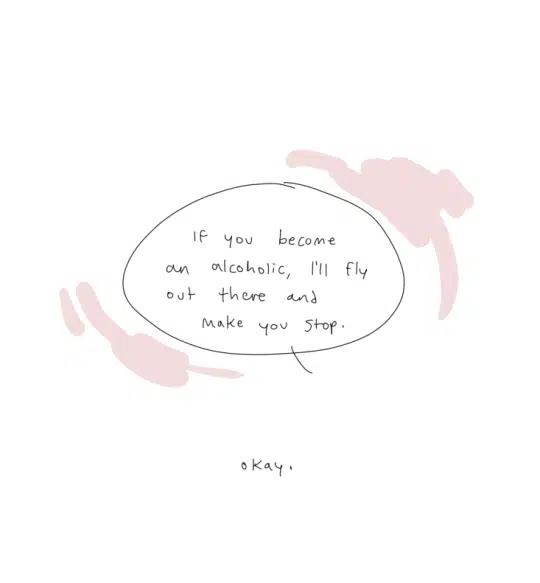 If you become
an alcoholic, I'll fly
out there and
make you stop.
okay.